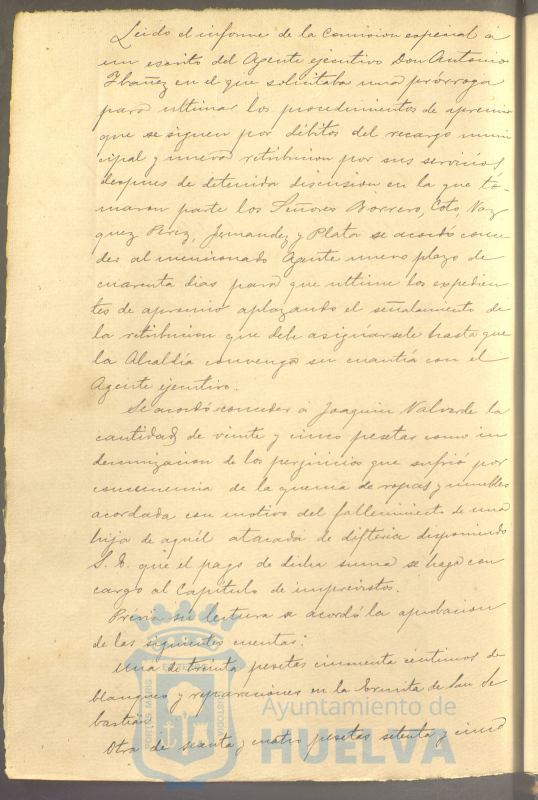 Leido el informe de la Comision especial á
un escrito del Agente ejecutivo Don Antonio
Ibañez en el que solicitaba una prórroga
para ultimar los procedimientos de apremio
que se siguen por débitos del recargo muni
cipal y nueva retribucion por sus servicios,
despues de detenida discusion en la que to-
maron parte los Señores Borrero, Coto, Vaz
quez Perez, Jernandez y Plata se acordó conce
der al mencionado Agente nuevo plazo de
cuarenta dias para que ultime los expedien
tes de apremio aplazando el señalamiento de
la retribucion que debe asignársele hasta que
la Alcaldía convenga su cuantía con el
Agente ejecutivo.
Se acordó conceder á Joaquin Valverde la
cantidad de veinte y cinco pesetas como in
demnizacion de los perjuicios que sufrió por
consecuencia de la quema de ropas y muebles
acordada con motivo del fallecimiento de una
hija de aquél atacada de difteria disponiendo
S. E. que el pago de dicha suma se haga con
cargo al Capítulo de imprevistos.
Prévia su lectura se acordó la aprobacion
de las siguientes cuentas:
Una de treinta pesetas cincuenta céntimos de
blanqueo y reparaciones en la Ermita de San Se
bastian
Otra de sesenta y cuatro pesetas setenta y cinco
PORTUS MARIS
Ayuntamiento de
HUELVA